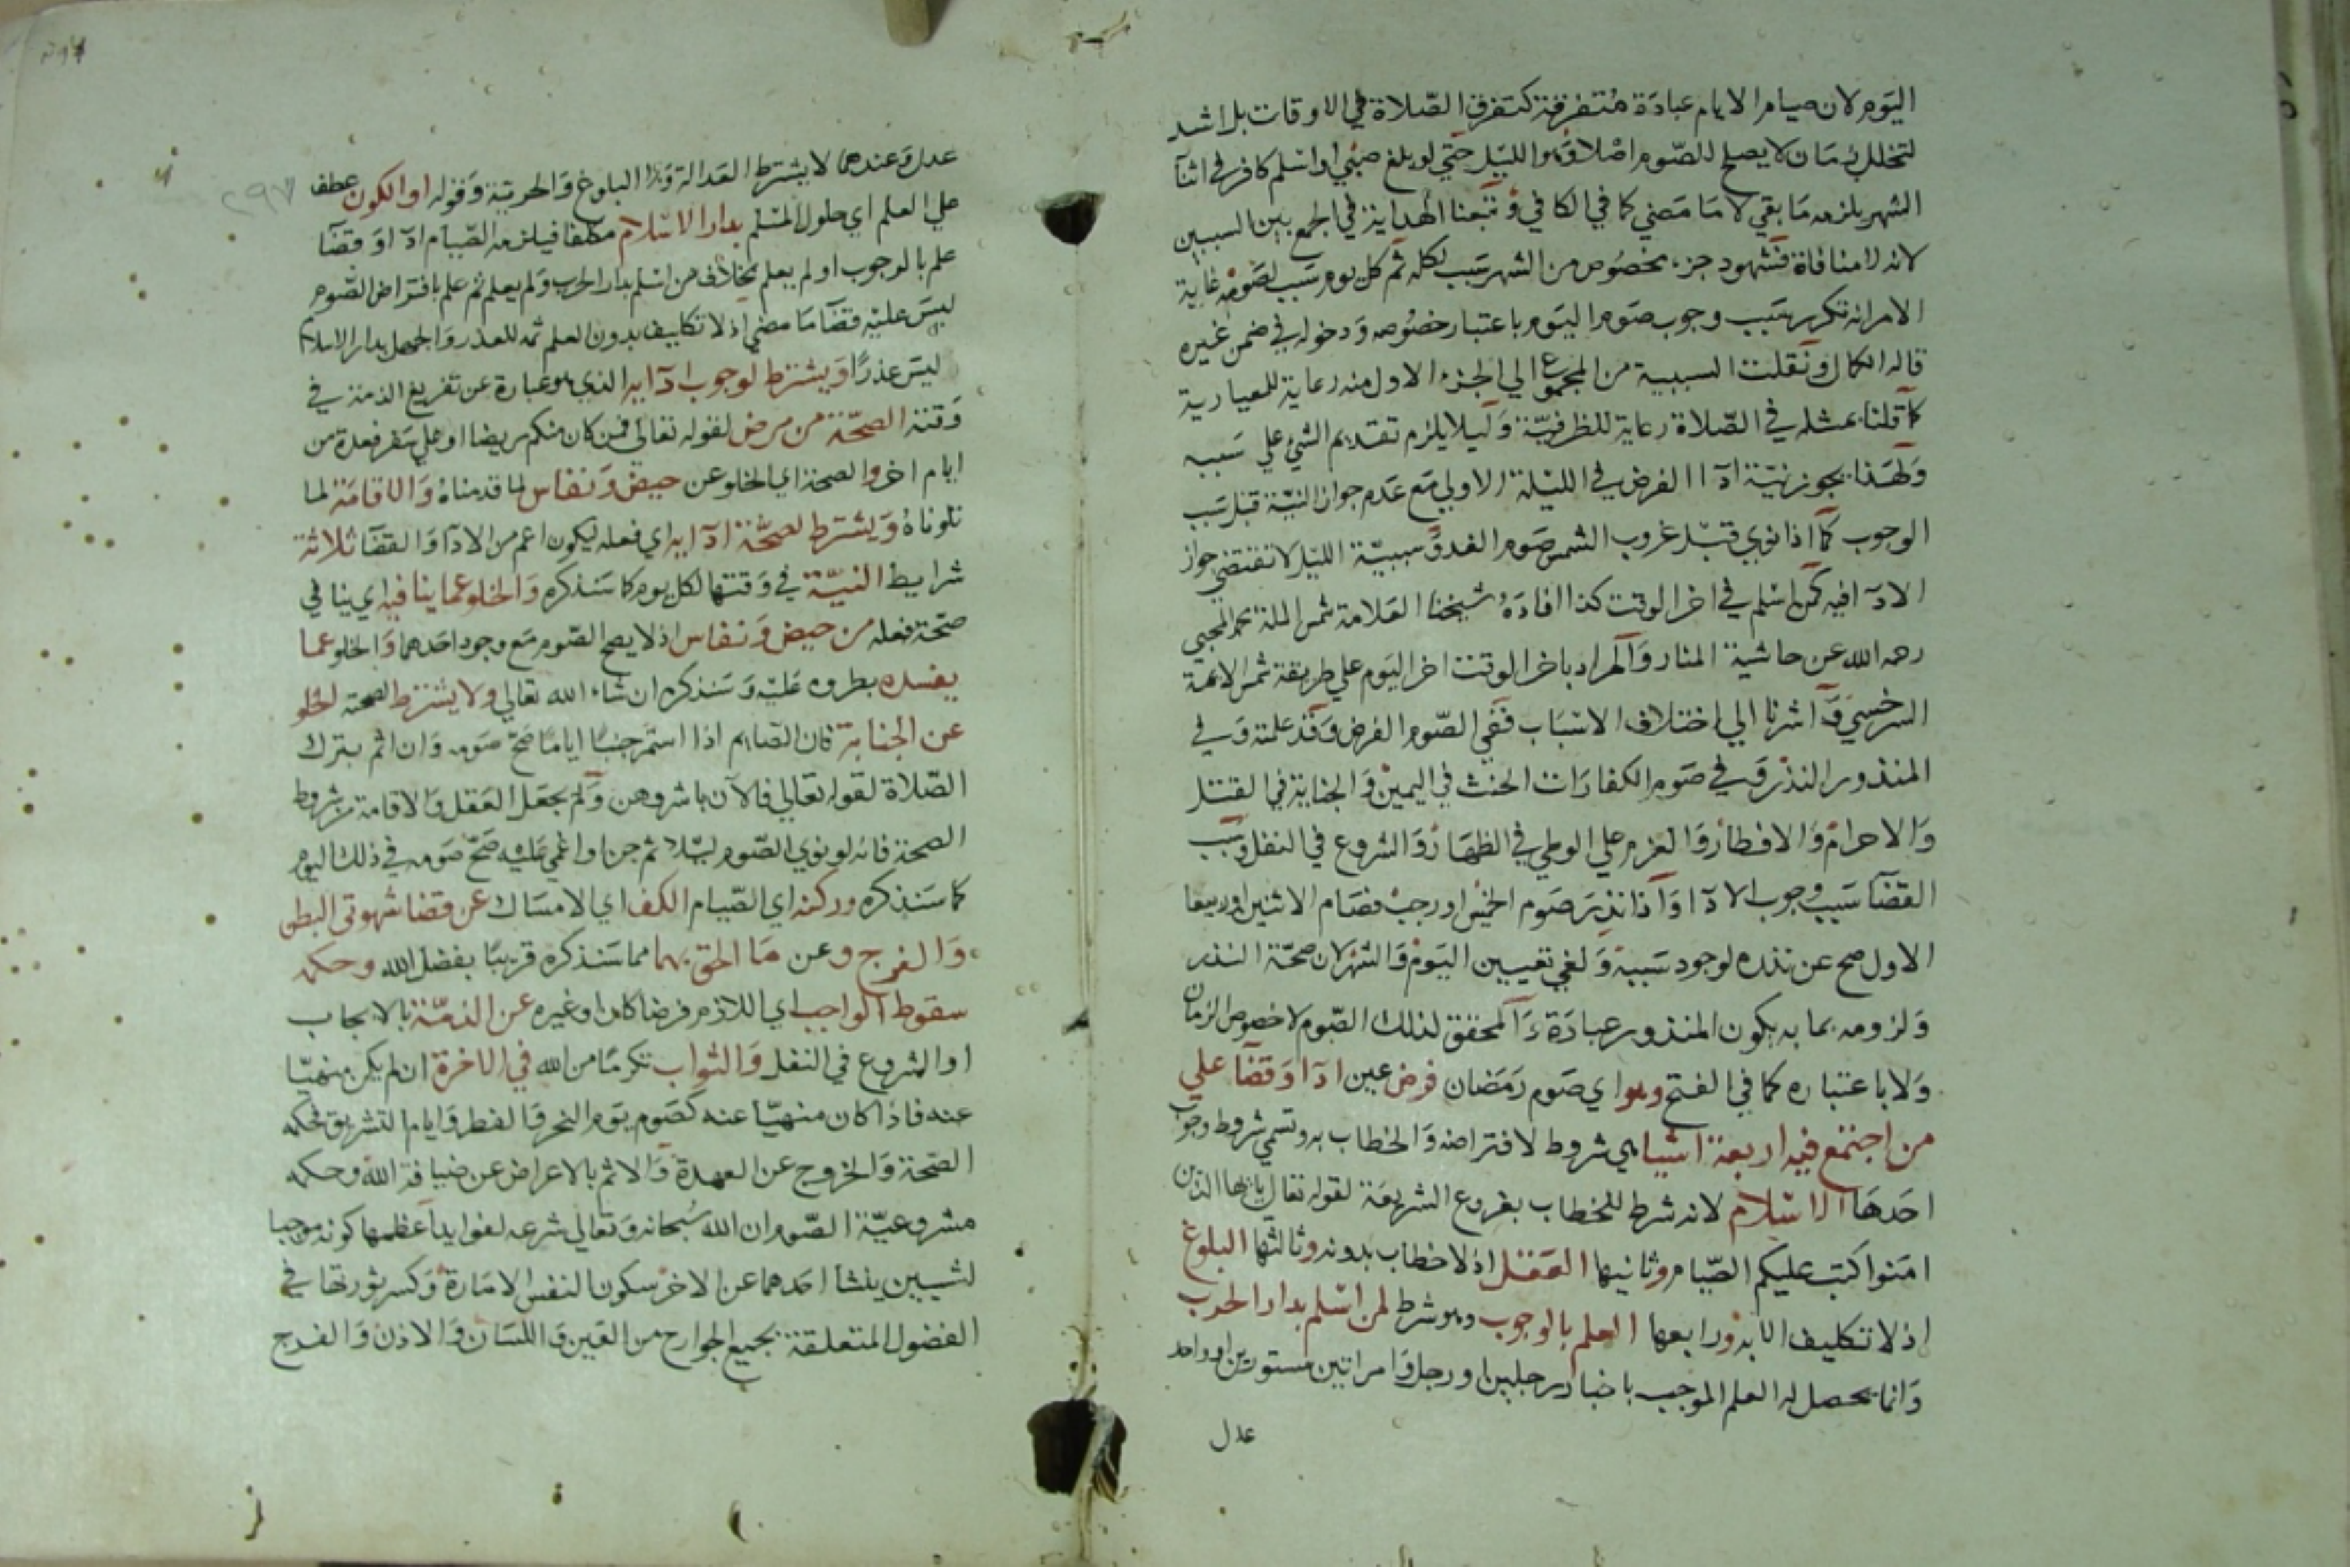 اليوم لان صيام الايام عبادة متفرقة كتفرق الصلاة في الاوقات بل اشد
لتخلل زمان لا يصلح للصوم اصلا وهو الليل حتي لو بلغ صبي او اسلم كافر في اثنآ
الشهر يلزمه ما بقي لا ما مضي كما في الكافي وتبعنا الهداية في الجمع بين السببين
لانه لا منافاة فشهود جزء مخصوص من الشهر سبب لكله ثم كل يوم سبب لصومه غاية
الامر انه تكرر سبب وجوب صوم اليوم باعتبار خصوصه ودخوله في ضمن غيره
قاله الكمال ونقلت السببية من المجموع الي الجزء الاول منه رعاية للمعيارية
كما قلنا بمثله في الصلاة رعاية للظرفية وليلا يلزم تقديم الشي علي سببه
ولهذا يجوز نية ادآ الفرض في الليلة الاولي مع عدم جواز النية قبل سبب
الوجوب كما اذا نوي قبل غروب الشمس صوم الغد وسببية الليل لا تقتضي جواز
الادآ فيه كمن اسلم في اخر الوقت كذا افاده شيخنا العلامة شمس الملة محمد المحبي
رحمه الله عن حاشية المنار والمراد باخر الوقت اخر اليوم علي طريقة شمس الائمة
السرخسي واشرنا الي اختلاف الاسباب ففي الصوم الفرض وقد علمته وفي
المنذور النذر وفي صوم الكفارات الحنث في اليمين والجناية في القتل
والاحرام والافطار والعزم علي الوطي في الظهار والشروع في النفل وسبب
القضآ سبب وجوب الادآ واذا نذر صوم الخميس او رجب فصام الاثنين او ربيعا
الاول صح عن نذره لوجود سببه ولغي تعيين اليوم والشهر لان صحة النذر
ولزومه بما به يكون المنذور عبادة والمحقق لذلك الصوم لا خصوص الزمان
ولا باعتباره كما في الفتح وهو اي صوم رمضان فرض عين ادآ وقضآ علي
من اجتمع فيه اربعة اشيا هي شروط لافتراضه والخطاب به وتسمي شروط وجوب
احدها الاسلام لانه شرط للخطاب بفروع الشريعة لقوله تعالي يايها الذين
امنوا كتب عليكم الصيام وثانيها العقل اذ لا خطاب بدونه وثالثها البلوغ
اذ لا تكليف الا به ورابعها العلم بالوجوب وهو شرط لمن اسلم بدار الحرب
وانما يحصل له العلم الموجب باخبار رجلين او رجل وامراتين مستورين او واحد
عدل
٢٩٧
عدل وعندهما لا يشترط العدالة ولا البلوغ والحرية وقوله او الكون عطف
علي العلم اي حلول المسلم بدار الاسلام مكلفا فيلزمه الصيام ادآ او قضآ
علم بالوجوب او لم يعلم بخلاف من اسلم بدار الحرب ولم يعلم ثم علم بافتراض الصوم
ليس عليه قضآ ما مضي اذ لا تكليف بدون العلم ثمه للعذر والجهل بدار الاسلام
ليس عذرا ويشترط لوجوب ادآيه الذي هو عبارة عن تفريغ الذمة في
وقته الصحة من مرض لقوله تعالي فمن كان منكم مريضا او علي سفر فعدة من
ايام اخر والصحة اي الخلو عن حيض ونفاس لما قدمناه والاقامة لما
تلوناه ويشترط لصحة ادآيه اي فعله ليكون اعم من الادآ والقضآ ثلاثة
شرايط النية في وقتها لكل يوم كما سنذكره والخلو عما ينافيه اي ينافي
صحة فعله من حيض ونفاس اذ لا يصح الصوم مع وجود احدهما والخلو عما
يفسده بطروه عليه وسنذكره ان شاء الله تعالي ولا يشترط لصحته الخلو
عن الجنابة فان الصايم اذا استمر جنبا اياما صح صومه وان اثم بترك
الصلاة لقوله تعالي فالآن باشروهن ولم يجعل العقل والاقامة من شروط
الصحة فانه لو نوي الصوم ليلا ثم جن او اغمي عليه صح صومه في ذلك اليوم
كما سنذكره وركنه اي الصيام الكف اي الامساك عن قضا شهوتي البطن
والفرج وعن ما الحق بهما مما سنذكره قريبا بفضل الله وحكمه
سقوط الواجب اي اللازم فرضا كان او غيره عن الذمة بالايجاب
او الشروع في النفل والثواب تكرما من الله في الاخرة ان لم يكن منهيا
عنه فاذا كان منهيا عنه كصوم يوم النحر والفطر وايام التشريق فحكمه
الصحة والخروج عن العهدة والاثم بالاعراض عن ضيافة الله وحكمة
مشروعية الصوم ان الله سبحانه وتعالي شرعه لفوايد اعظمها كونه موجبا
لشيين ينشأ احدهما عن الاخر سكون النفس الامارة وكسر ثورتها في
الفضول المتعلقة بجميع الجوارح من العين واللسان والاذن والفرج